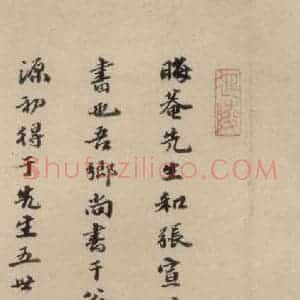 晦菴先生和張宣
書也吾鄉尚書于
源初得于先生五世
Shufaziliao.COM